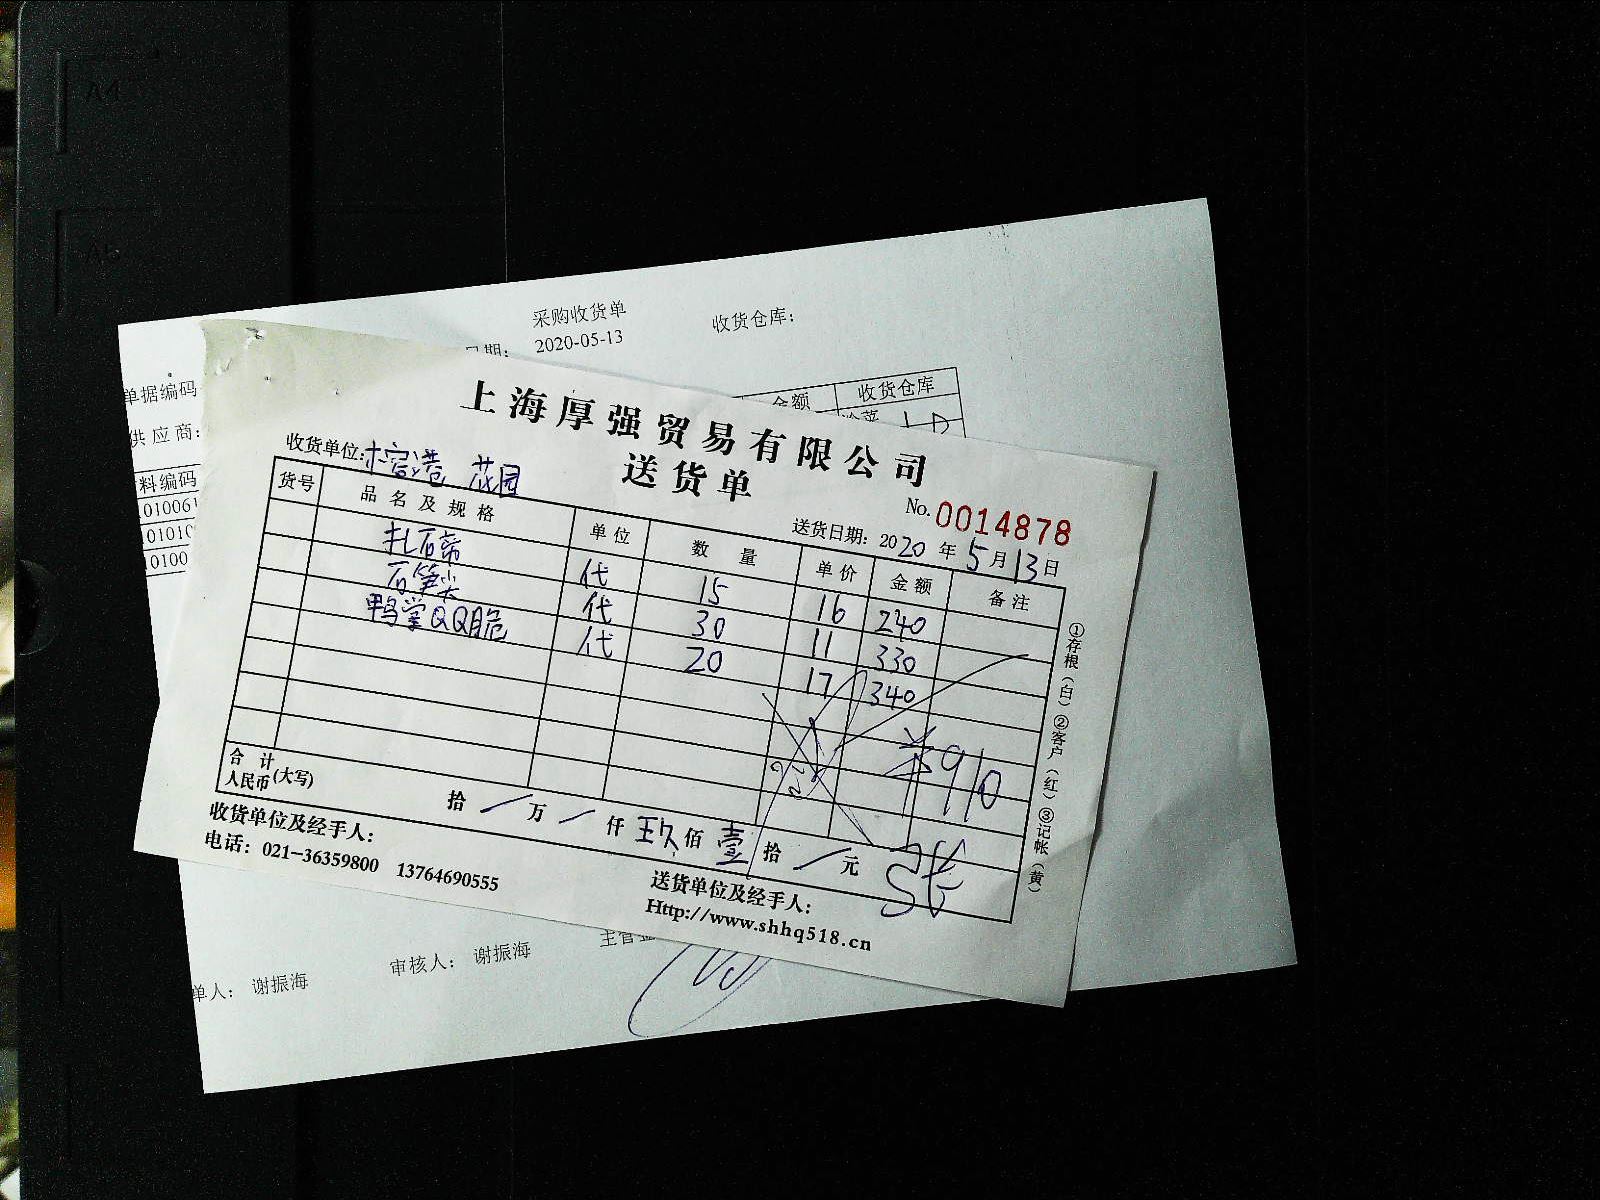 A4
A5
采购收货单
日期: 2020-05-13
收货仓库:
单据编码
供应商:
金额 收货仓库
料编码
010061
01010
0100
上海厚强贸易有限公司
送货单
收货单位: 榕港 花园
No. 0014878
送货日期: 2020 年 5 月 13 日
货号 品名及规格 单位 数量 单价 金额 备注
扎石帝 代 15 16 240
石笋尖 代 30 11 330
鸭掌QQ脆 代 20 17 340
¥910
合计
人民币(大写) 拾 / 万 / 仟 玖 佰 壹 拾 / 元
收货单位及经手人:
电话: 021-36359800 13764690555
送货单位及经手人:
Http://www.shhq518.cn
①存根(白) ②客户(红) ③记帐(黄)
单人: 谢振海
审核人: 谢振海
主管